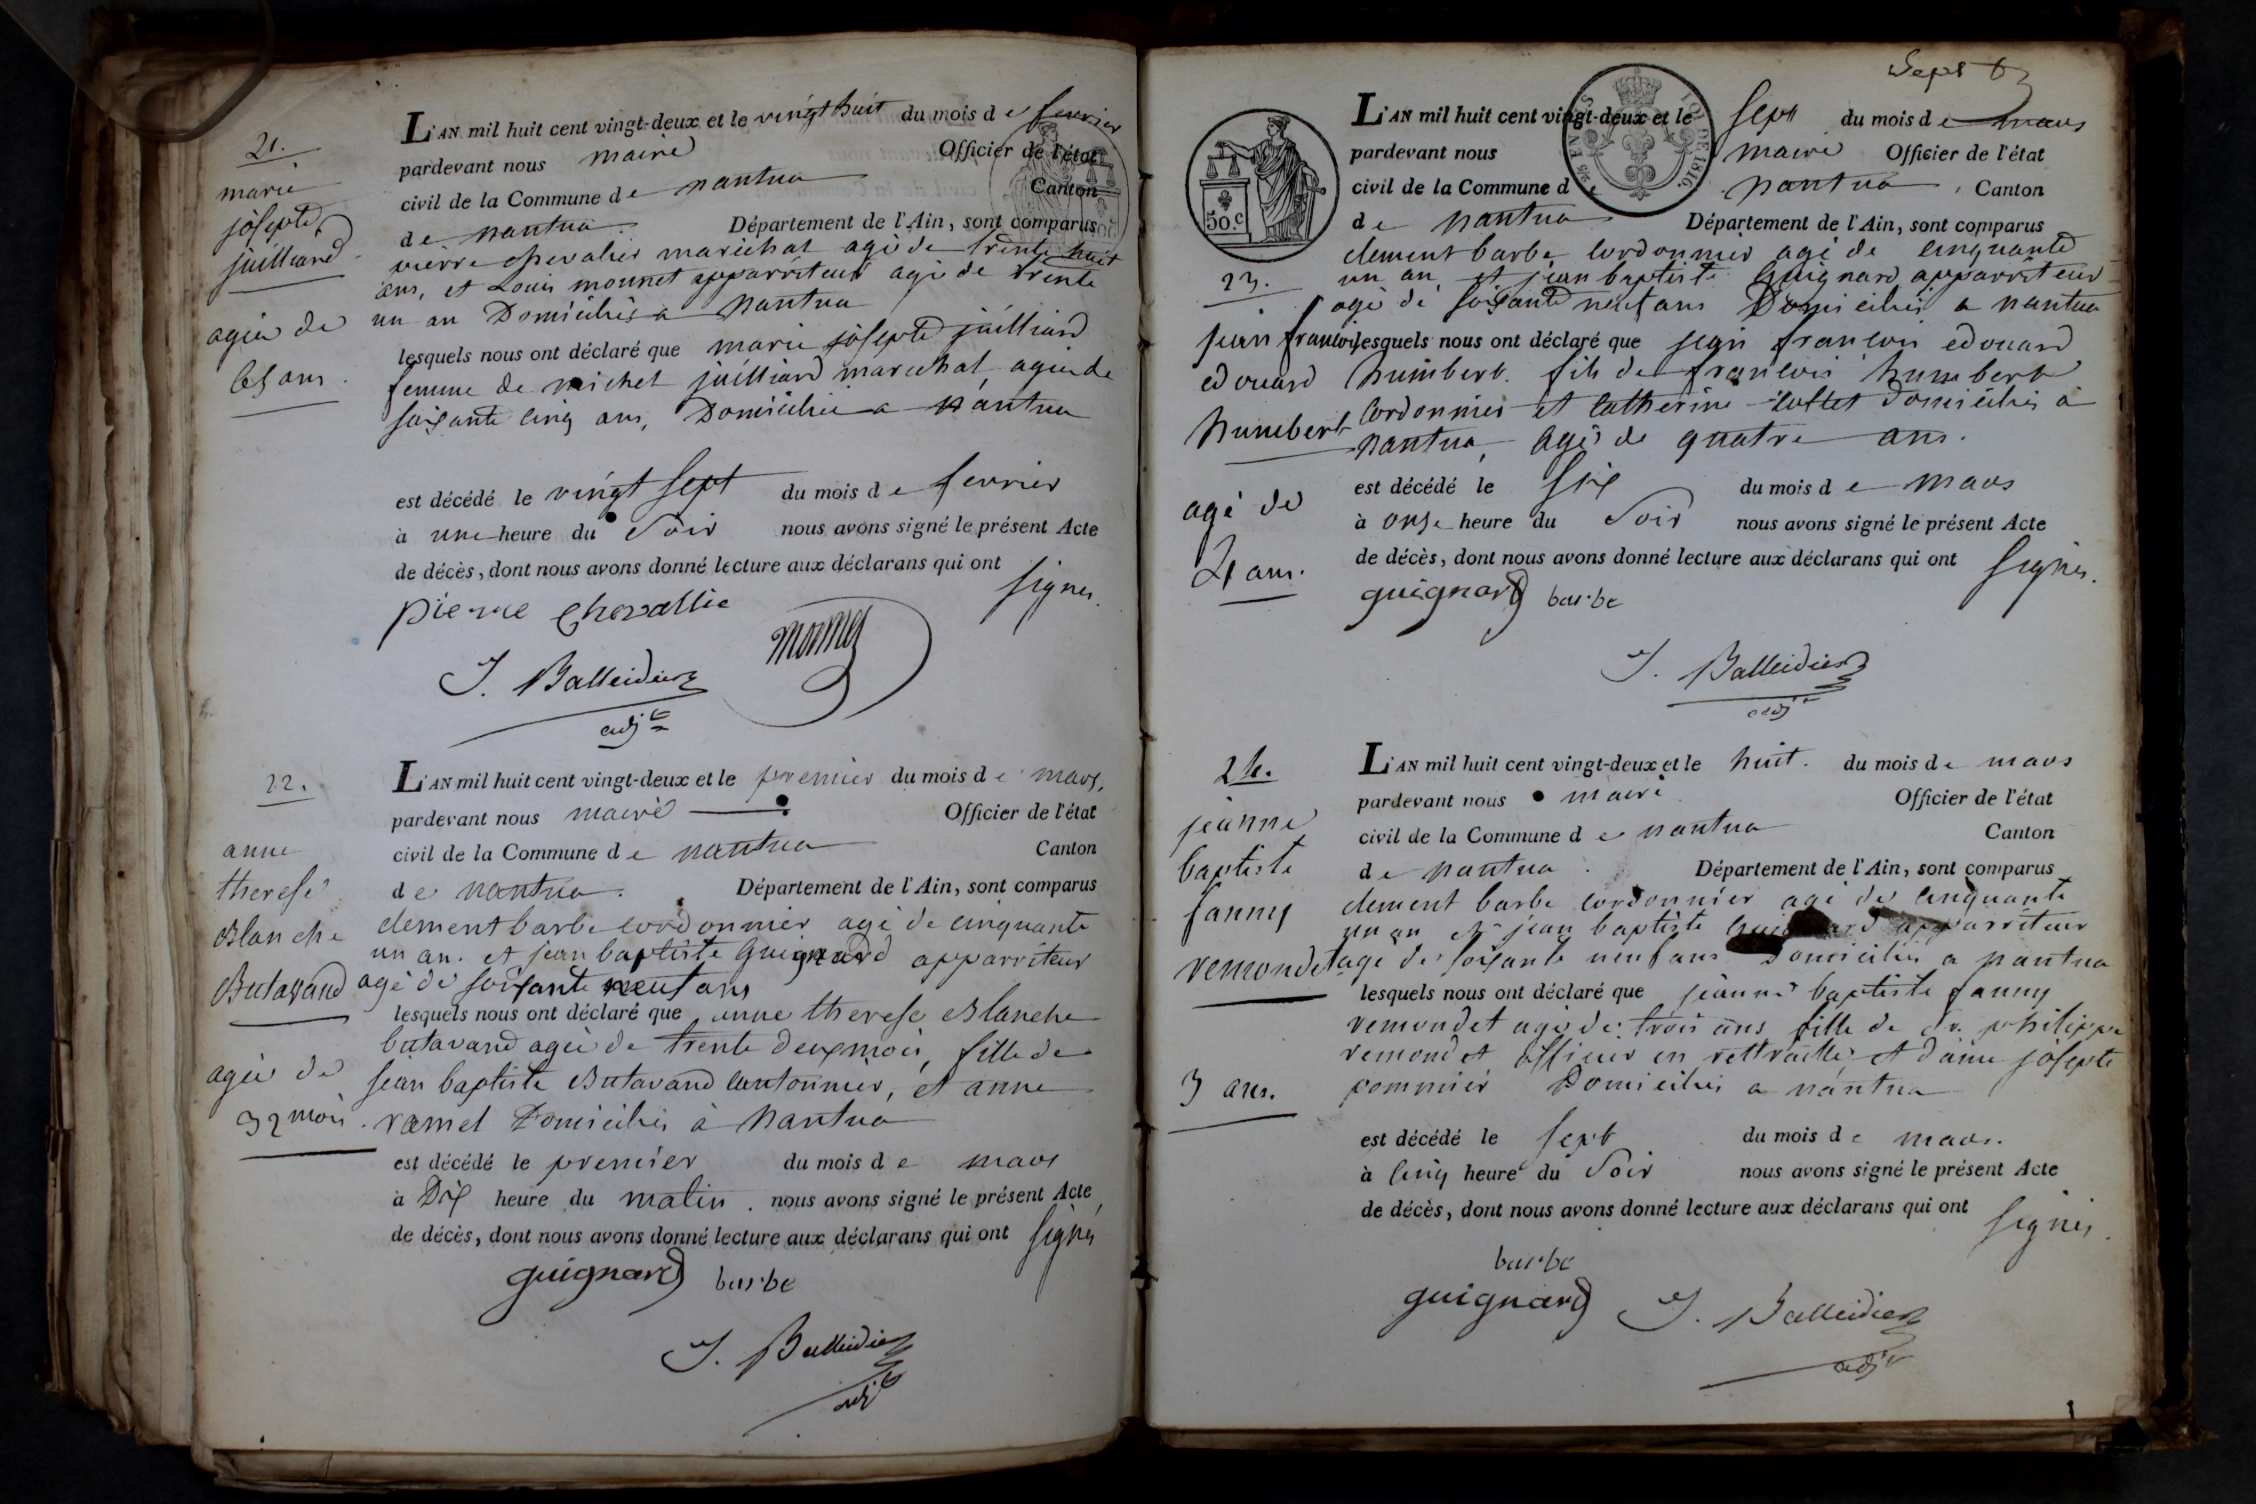 21.
marie
josepte
juilliard
agée de
65 ans.
L'AN mil huit cent vingt-deux et le vingt huit du mois de fevrier
pardevant nous maire Officier de l'état
civil de la Commune de nantua Canton
de nantua. Département de l'Ain, sont comparus
pierre chevalier marichat agé de trente huit
ans, et Louis monnet apparriteur agé de trente
un an Domiciliés a nantua
lesquels nous ont déclaré que marie josepte juilliard
femme de michel juilliard marechat, agée de
soixante cinq ans, Domiciliée a nantua
est décédé le vingt sept du mois de fevrier
à une heure du Soir nous avons signé le présent Acte
de décès, dont nous avons donné lecture aux déclarans qui ont
signés.
pierre Chevallie
monnet
J. Balleidier
adj.t
22.
anne
therese
Blanche
Butavand
agée de
32 mois.
L'AN mil huit cent vingt-deux et le premier du mois de mars,
pardevant nous maire Officier de l'état
civil de la Commune de nantua Canton
de nantua. Département de l'Ain, sont comparus
clement barbe cordonnier agé de cinquante
un an. et jean baptiste Guignard apparriteur
agé de soixante neuf ans
lesquels nous ont déclaré que anne therese Blanche
butavand agée de trente deux mois, fille de
jean baptiste Butavand cantonnier, et anne
ramel Domiciliés à Nantua
est décédé le premier du mois de mars
à Dix heure du matin. nous avons signé le présent Acte
de décès, dont nous avons donné lecture aux déclarans qui ont signés
guignard barbe
J. Balleidier
adjt
Sept
50.c
TIM
LOI DE 1816.
23.
jean francois
edouard
humbert
agé de
4 ans.
L'AN mil huit cent vingt-deux et le sept du mois de mars
pardevant nous maire Officier de l'état
civil de la Commune d nantua, Canton
de nantua Département de l'Ain, sont comparus
clement barbe cordonnier agé de cinquante
un an, et jean baptiste Guignard apparriteur
agé de soixante neuf ans Domiciliés a nantua
lesquels nous ont déclaré que jean francois edouard
humbert. fils de francois humbert
cordonnier et catherine collet domiciliés à
nantua, agé de quatre ans.
est décédé le six du mois de mars
à onze heure du Soir nous avons signé le présent Acte
de décès, dont nous avons donné lecture aux déclarans qui ont
signés.
guignard barbe
J. Balleidier
adjt
24.
jeanne
baptiste
fanny
remondet
3 ans.
L'AN mil huit cent vingt-deux et le huit. du mois de mars
pardevant nous maire Officier de l'état
civil de la Commune de nantua Canton
de nantua. Département de l'Ain, sont comparus
clement barbe cordonnier agé de cinquante
un an et jean baptiste Guignard apparriteur
agé de soixante neuf ans Domiciliés a nantua
lesquels nous ont déclaré que jeanne baptiste fanny
remondet agée de trois ans fille de Sr. philippe
remondet officier en rettraitte et dame josepte
pommier Domiciliés a nantua
est décédé le sept du mois de mars.
à cinq heure du Soir nous avons signé le présent Acte
de décès, dont nous avons donné lecture aux déclarans qui ont
signés.
barbe
guignard J. Balleidier
adjt